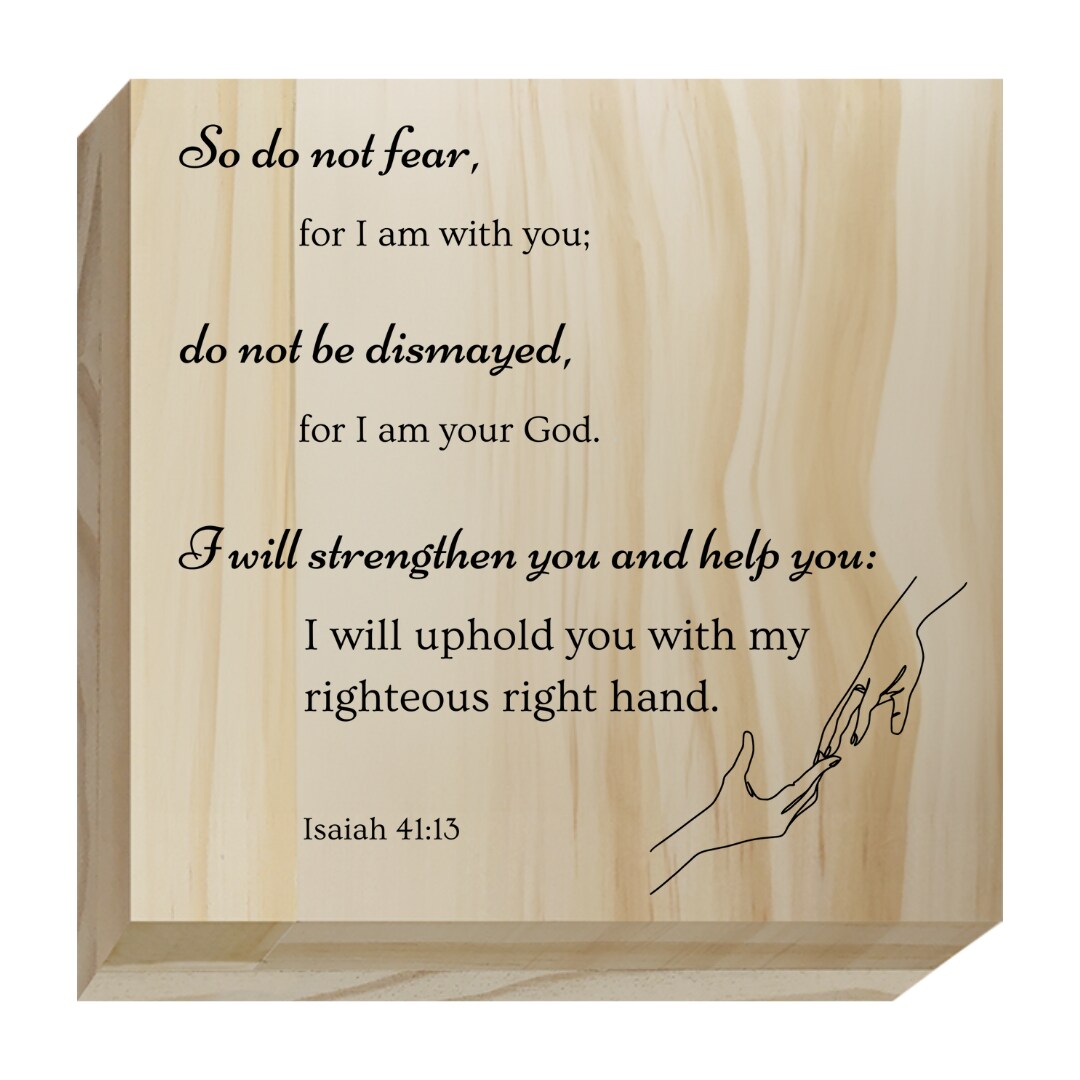 So do not fear,
for I am with you;
do not be dismayed,
for I am your God.
I will strengthen you and help you:
I will uphold you with my
righteous right hand.
Isaiah 41:13